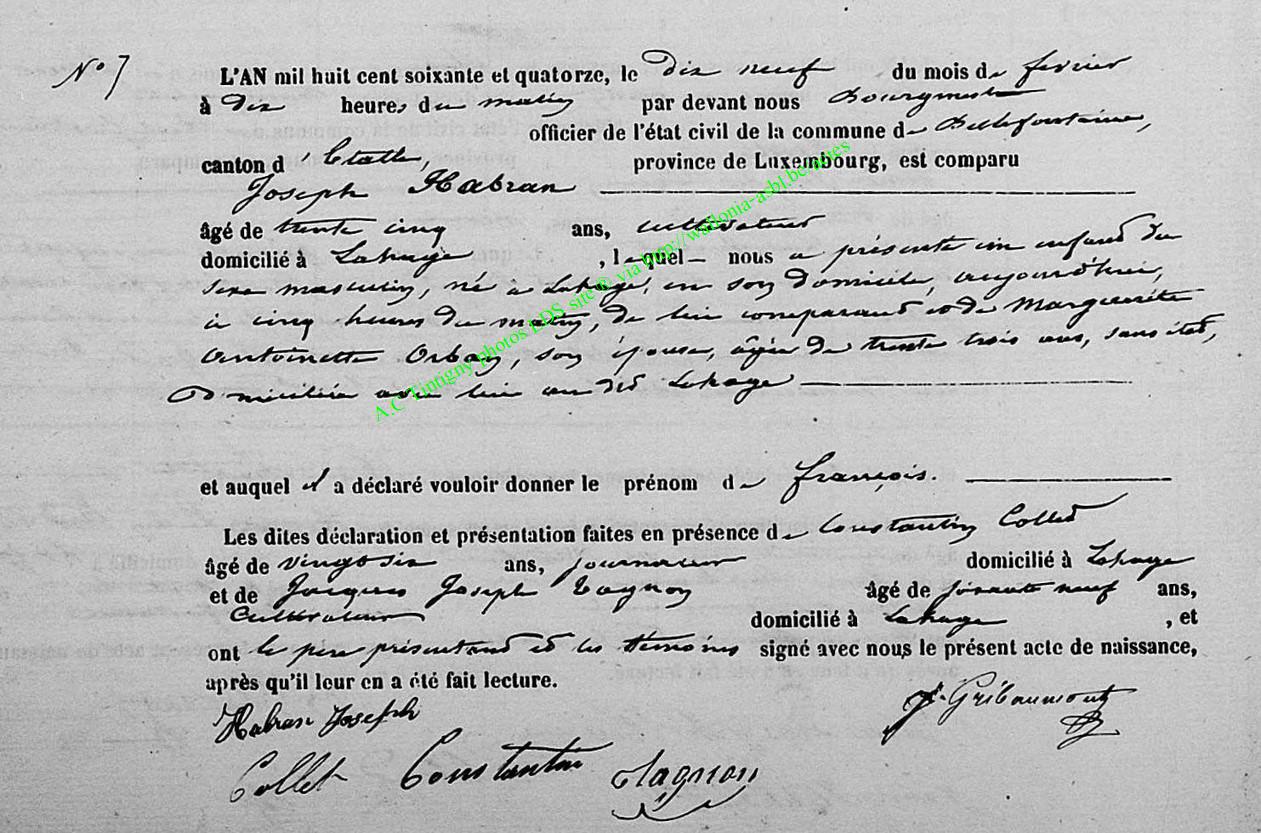 N° 7
L'AN mil huit cent soixante et quatorze, le dix neuf du mois de fevrier
à dix heures du matin par devant nous Bourgmestre
officier de l'état civil de la commune de Bellefontaine,
canton d'Etalle, province de Luxembourg, est comparu
Joseph Habran
âgé de trente cinq ans, cultivateur
domicilié à Lahage, lequel nous a présenté un enfant du
sexe masculin, né à Lahage, en son domicile, aujourd'hui,
à cinq heures du matin, de lui comparant et de Marguerite
Antoinette Orban, son épouse, âgée de trente trois ans, sans état,
Domiciliée avec lui au dit Lahage
et auquel il a déclaré vouloir donner le prénom de françois.
Les dites déclaration et présentation faites en présence de Constantin Collet
âgé de vingt six ans, journalier domicilié à Lahage
et de Jacques Joseph Tagnon âgé de soixante neuf ans,
Cultivateur domicilié à Lahage, et
ont le père présentant et les témoins signé avec nous le présent acte de naissance,
après qu'il leur en a été fait lecture.
Habran Joseph J. Gribaumont
Collet Constantin Tagnon
A.C Tintigny photos EDS site © via http://wallonia-asbl.be/sites